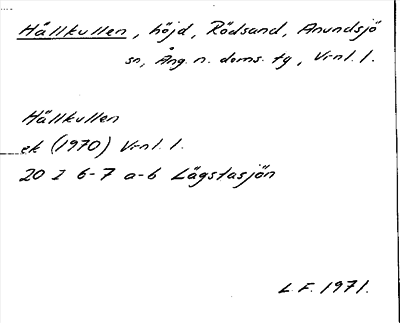 Hällkullen, höjd, Rödsand, Anundsjö
sn, Ång. n. doms. tg, Vrnl. l.
Hällkullen
ek (1970) Vrnl. l.
20 I 6-7 a-b Lägstasjön
L.F. 1971.